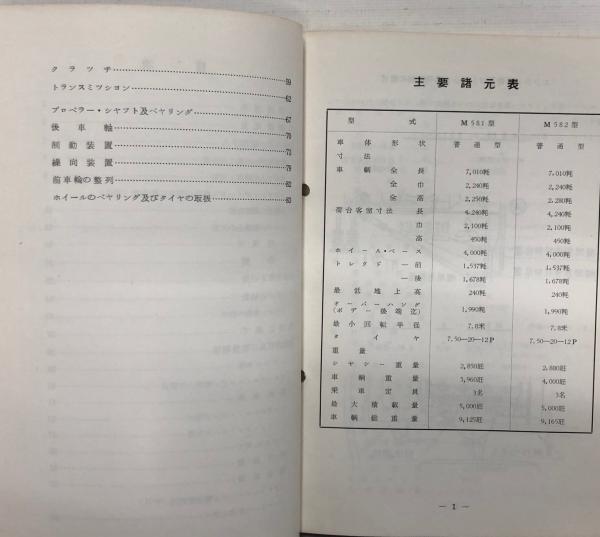 クラツチ……59
トランスミツシヨン……62
プロペラー・シヤフト及ベヤリング……67
後車軸……70
制動装置……73
操向装置……79
前車輪の整列……82
ホイールのベヤリング及びタイヤの取扱……83
主要諸元表
型式 M581型 M582型
車体形状 普通型 普通型
寸法
車輌全長 7,010粍 7,010粍
全巾 2,240粍 2,240粍
全高 2,250粍 2,280粍
荷台客室寸法 長 4,240粍 4,240粍
巾 2,100粍 2,100粍
高 450粍 450粍
ホイール・ベース 4,000粍 4,000粍
トレッド ー前 1,537粍 1,537粍
ー後 1,678粍 1,678粍
最低地上高 240粍 240粍
オーバーハング
(ボデー後端迄) 1,990粍 1,990粍
最小回転半径 7.8米 7.8米
タイヤ 7.50—20—12P 7.50—20—12P
重量
シヤシー重量 2,850瓩 2,880瓩
車輌重量 3,960瓩 4,000瓩
乗車定員 3名 3名
最大積載量 5,000瓩 5,000瓩
車輌総重量 9,125瓩 9,165瓩
— 1 —